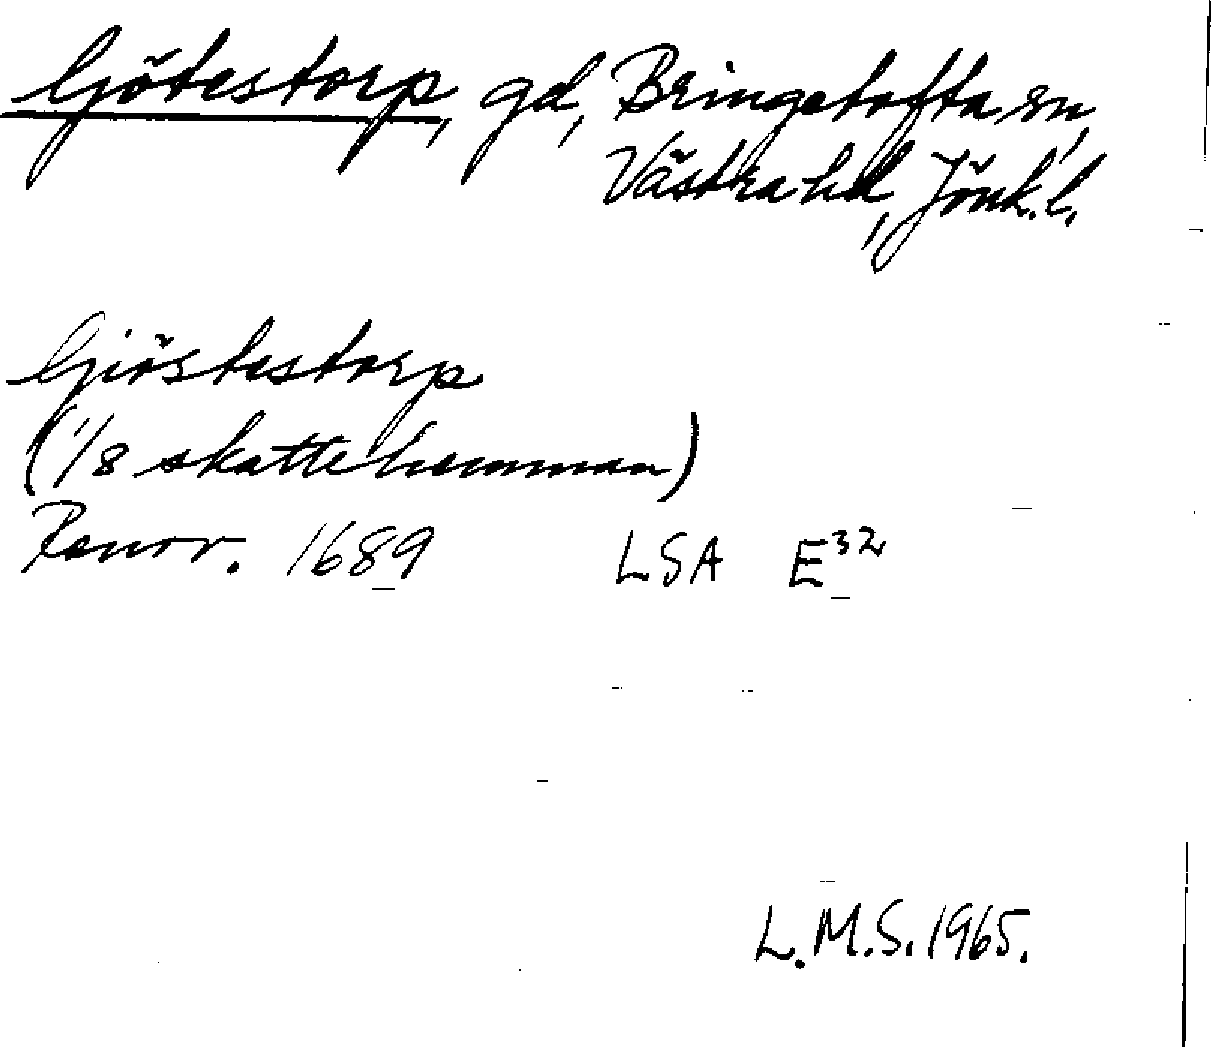 Götestorp, gd, Bringetofta sn,
Västra hd, Jönk. l.
Giöstestorp
(1/8 skattehemman)
Renov. 1689 LSA E32
L.M.S. 1965.